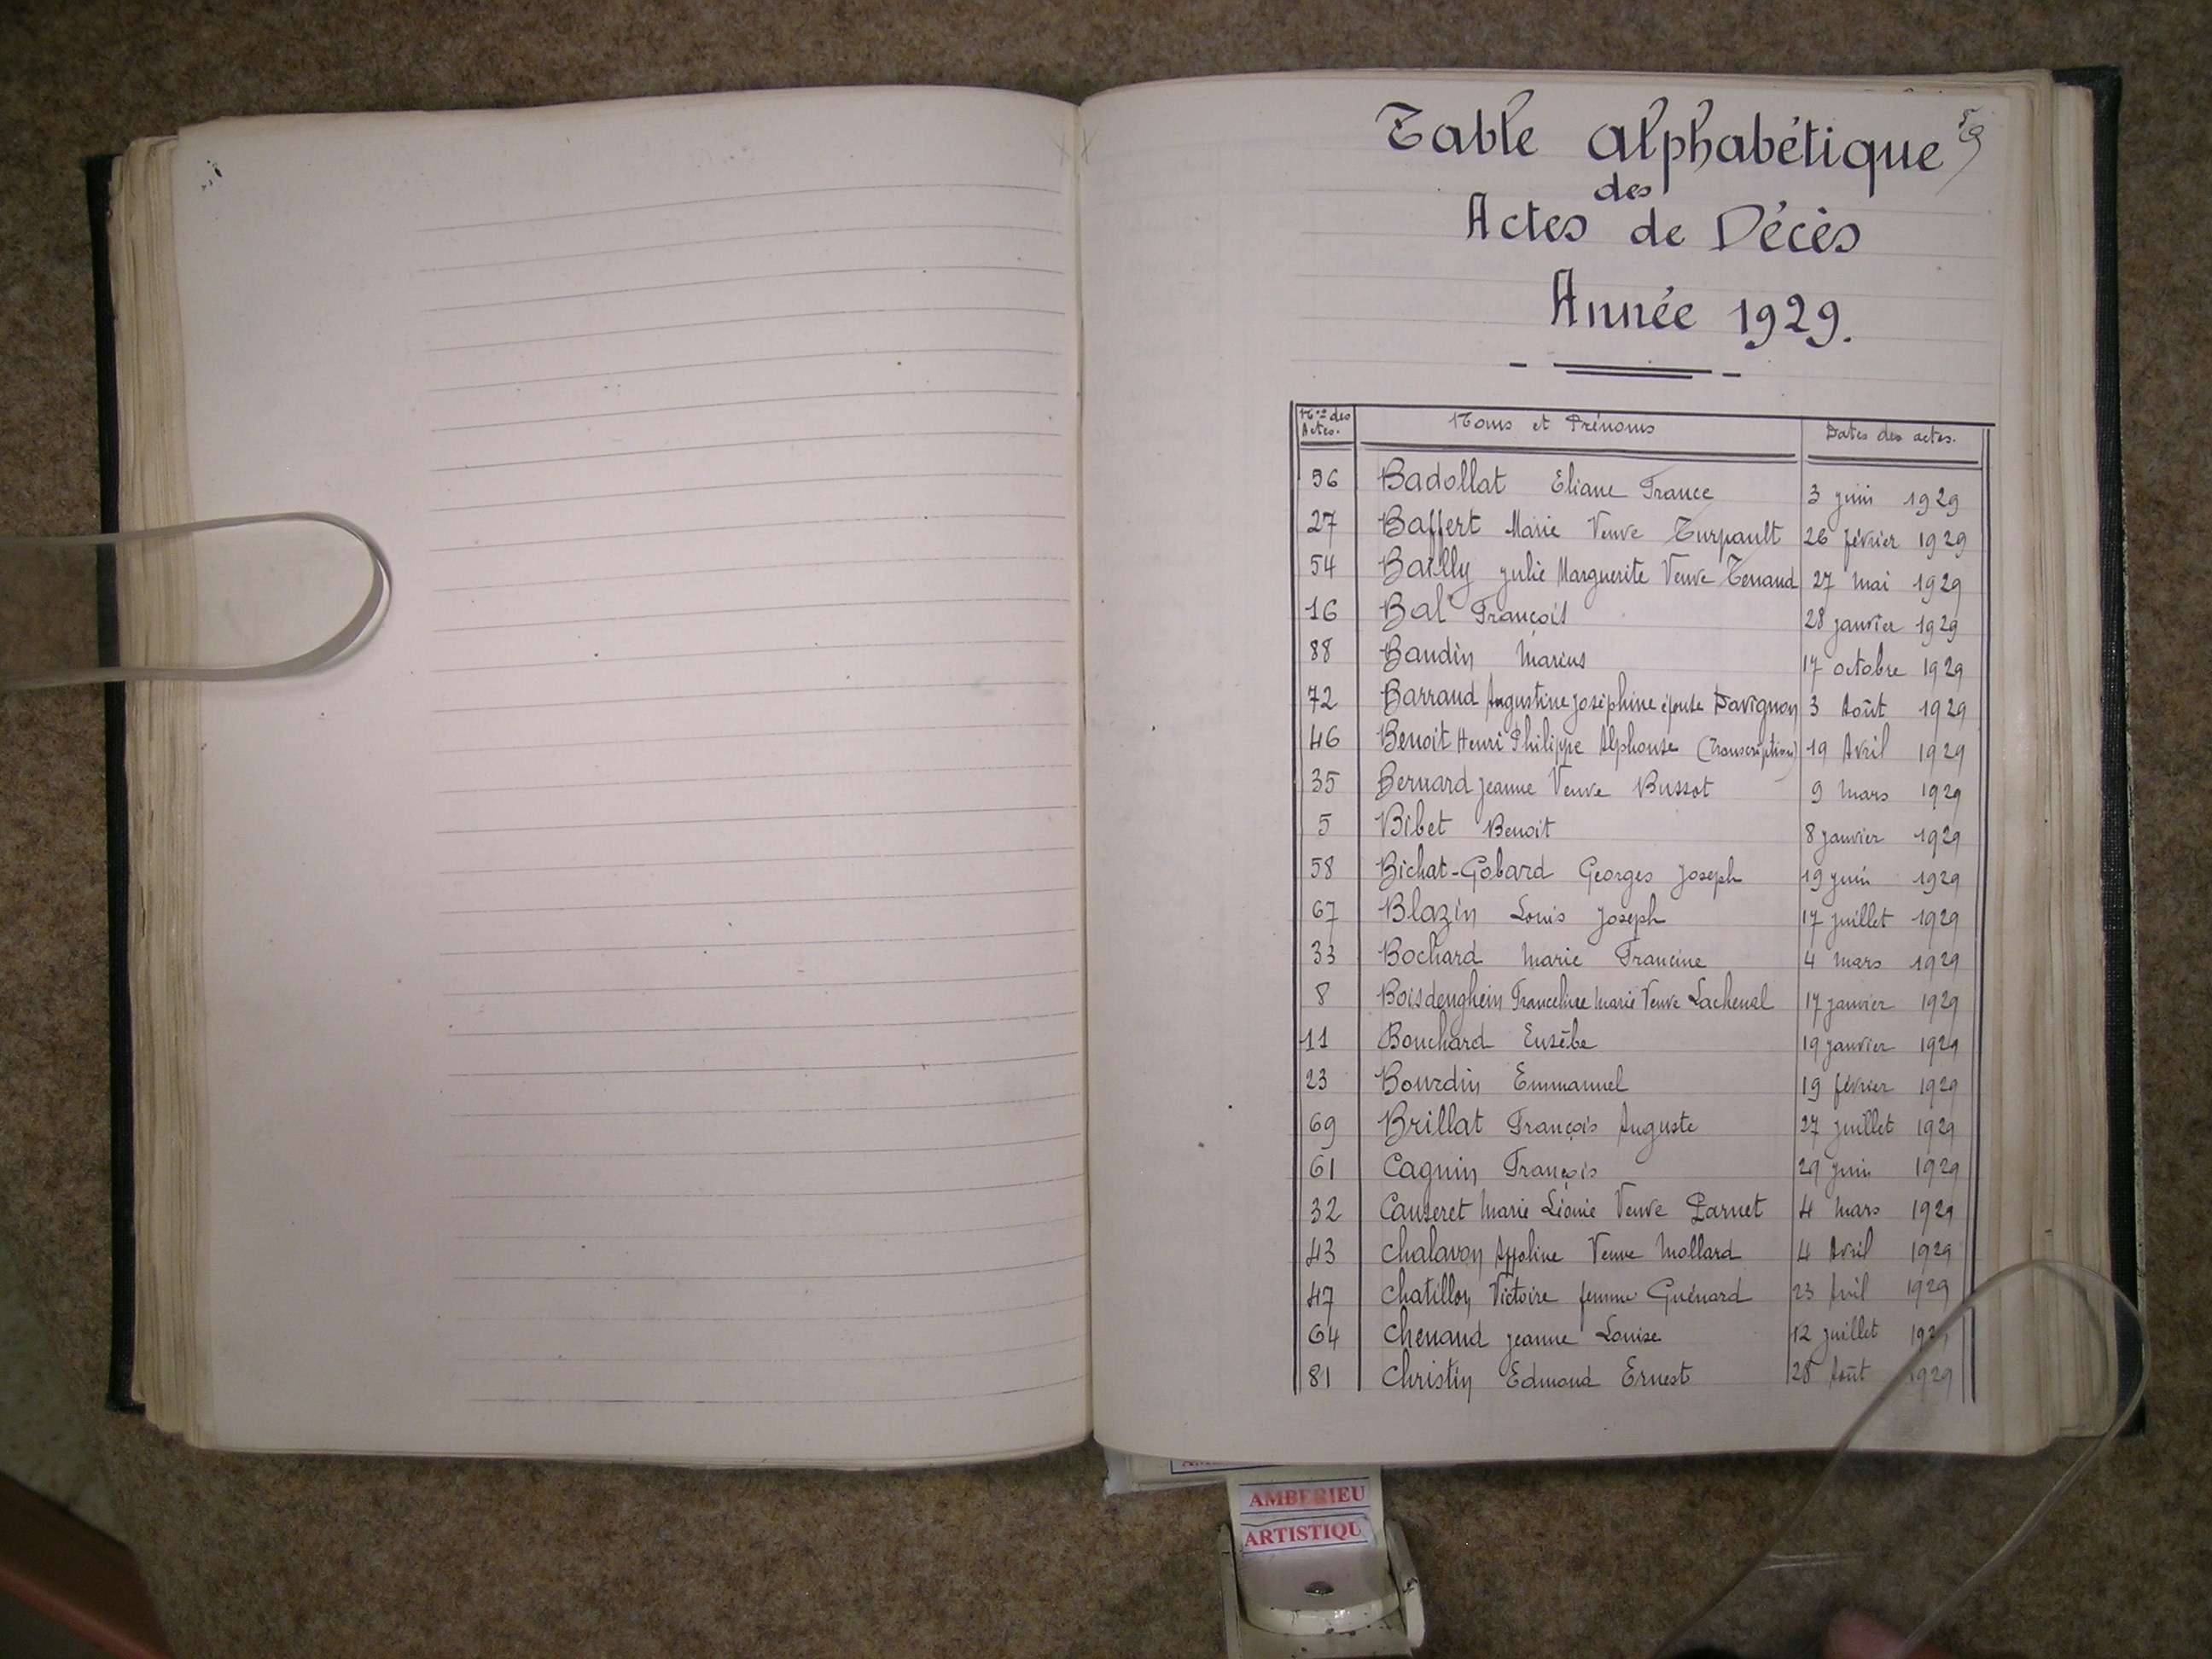 Table Alphabétique
des
Actes de Décès
Année 1929.
Nos des Actes. Noms et Prénoms Dates des actes.
56 Badollat Eliane France 3 juin 1929
27 Baffert Marie Veuve Turpault 26 février 1929
54 Bailly Julie Marguerite Veuve Tenaud 27 mai 1929
16 Bal François 28 janvier 1929
88 Baudin Marius 17 octobre 1929
72 Barraud Augustine Joséphine épouse Davignon 3 Août 1929
46 Benoit Henri Philippe Alphonse (Transcription) 19 Avril 1929
35 Bernard Jeanne Veuve Bussot 9 Mars 1929
5 Bibet Benoit 8 janvier 1929
58 Bichat-Gobard Georges Joseph 19 juin 1929
67 Blazin Louis Joseph 17 juillet 1929
33 Bochard Marie Francine 4 Mars 1929
8 Boisdenghein Franceline Marie Veuve Lachenal 17 janvier 1929
11 Bouchard Eusèbe 19 janvier 1929
23 Bourdin Emmanuel 19 février 1929
69 Brillat François Auguste 27 juillet 1929
61 Cagnin François 29 juin 1929
32 Causeret Marie Léonie Veuve Parnet 4 Mars 1929
43 Chalavon Appoline Veuve Mollard 4 Avril 1929
47 Chatillon Victoire femme Guénard 23 Avril 1929
64 Chenaud Jeanne Louise 12 juillet 1929
81 Christin Edmond Ernest 28 Août 1929
AMBERIEU
ARTISTIQU